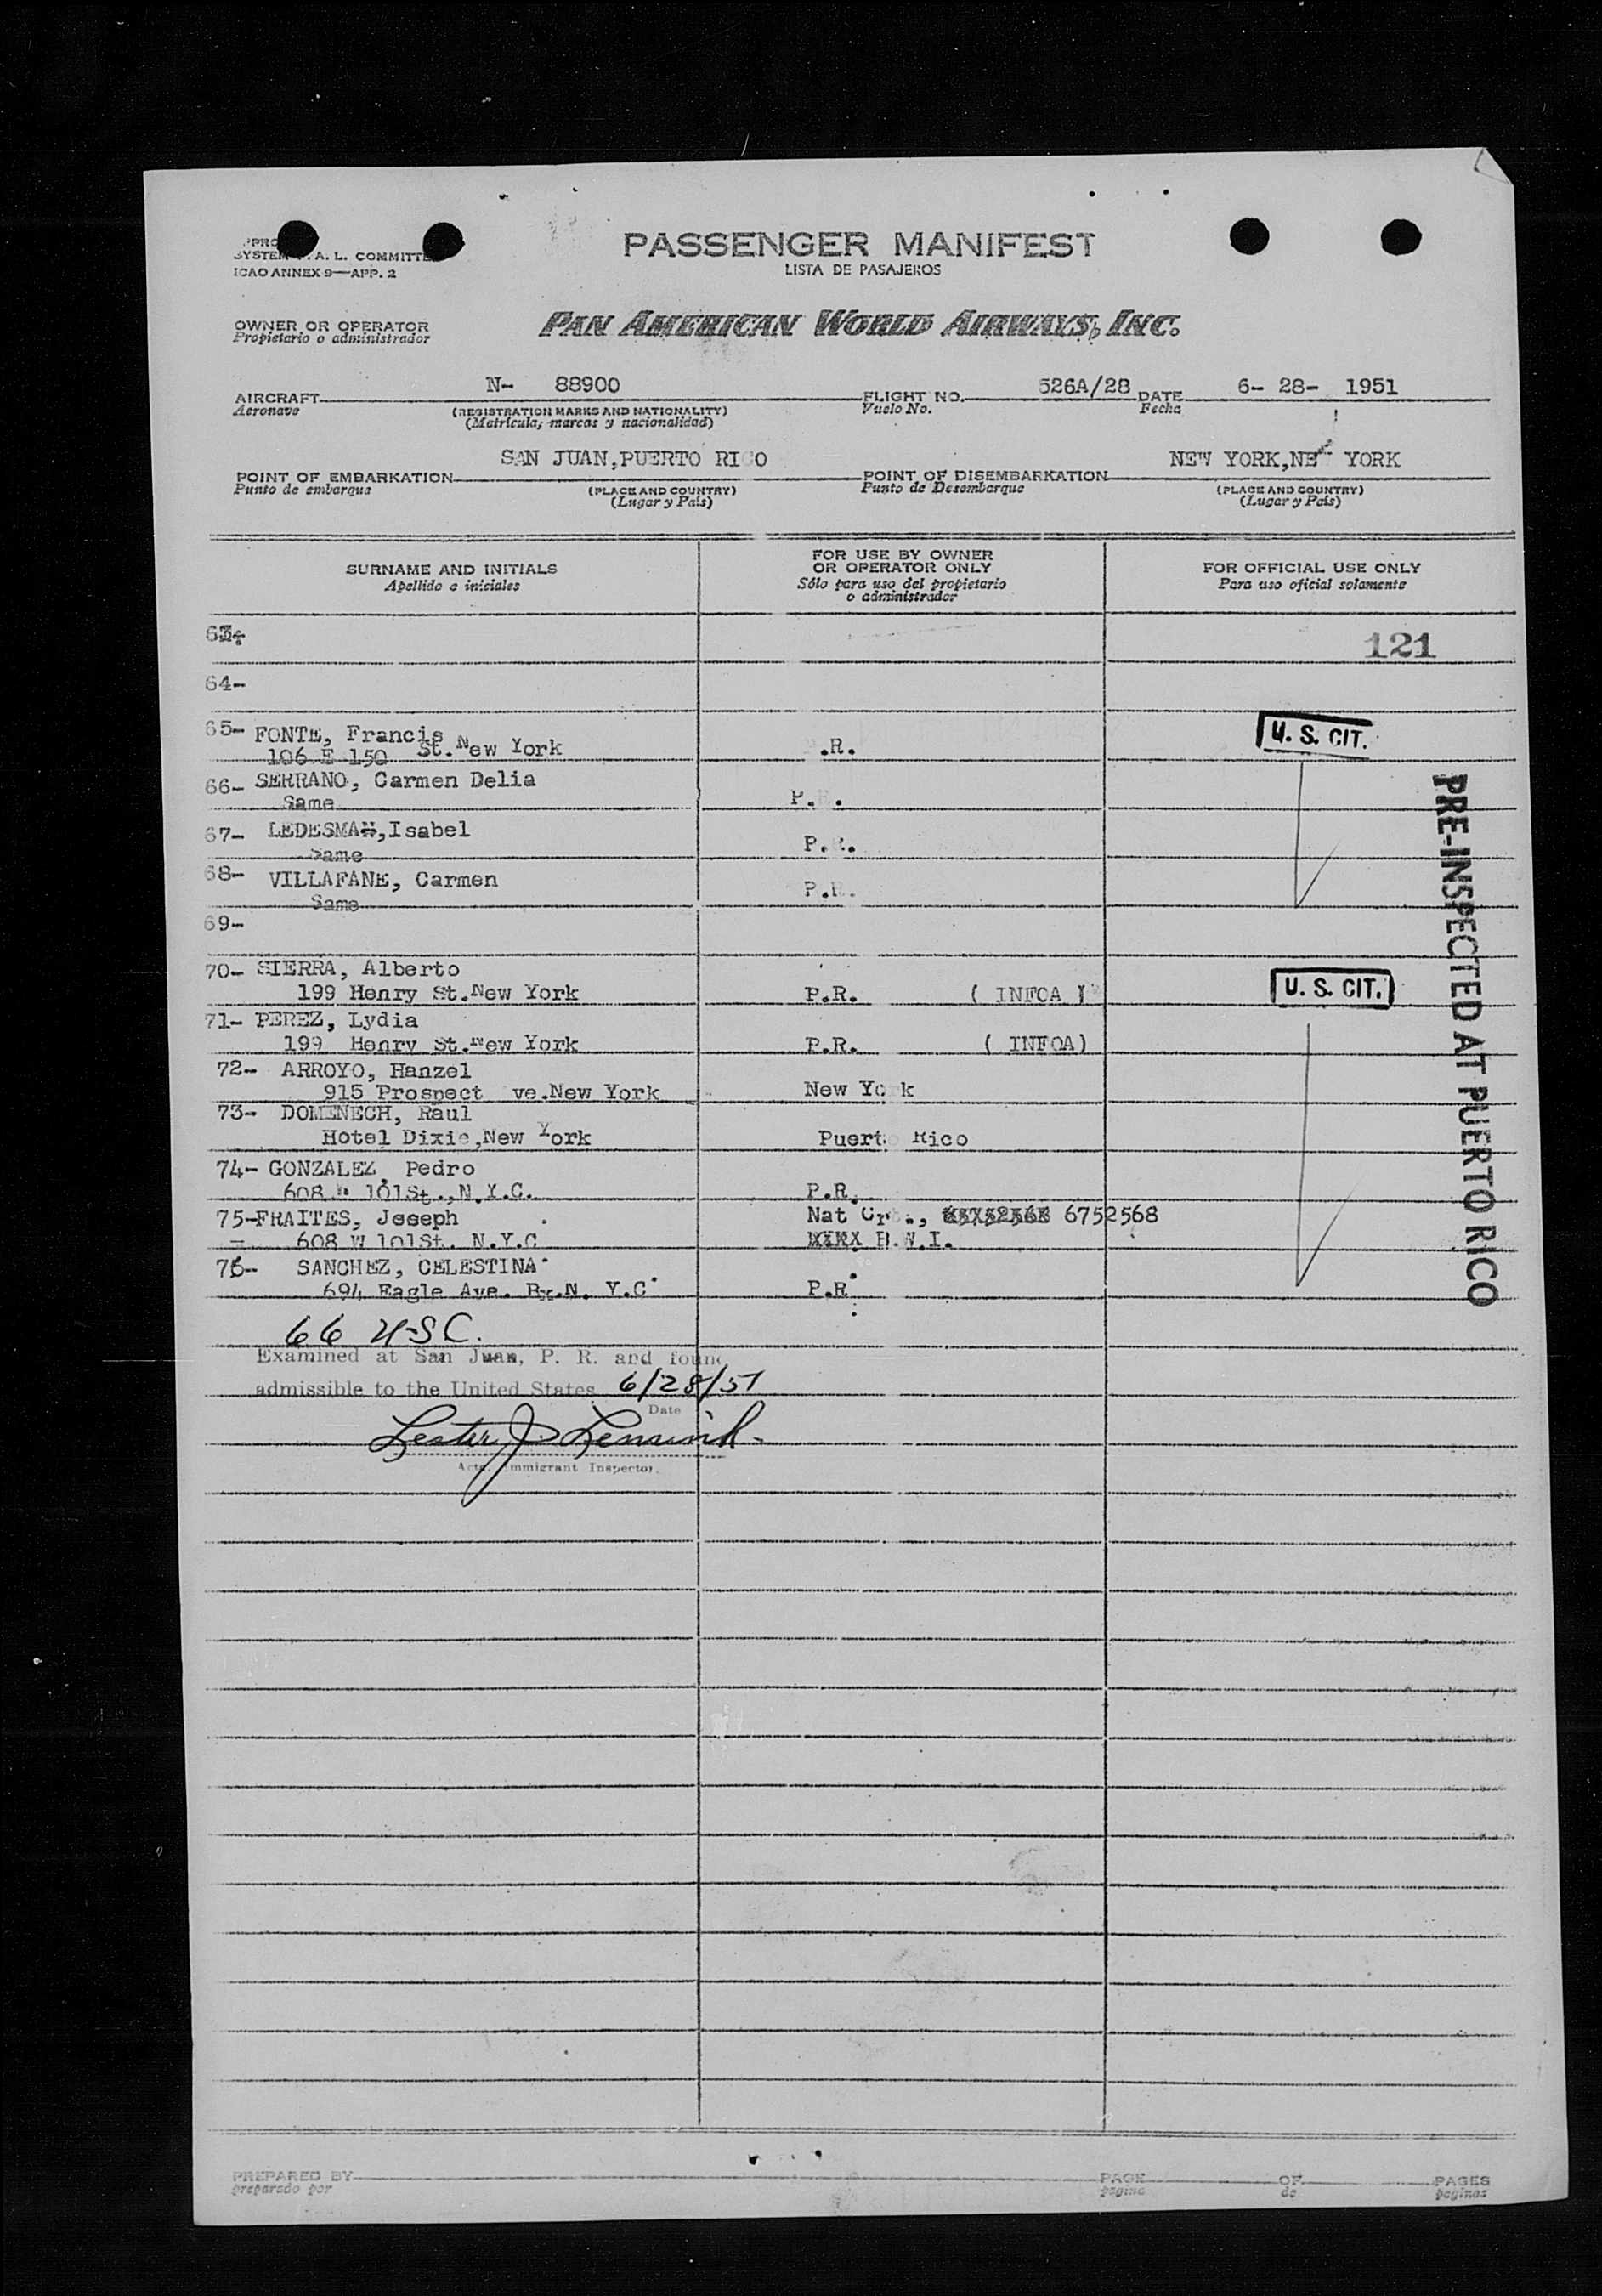 SYSTEM F. A. L. COMMITTEE
ICAO ANNEX 9—APP. 2
PASSENGER MANIFEST
LISTA DE PASAJEROS
OWNER OR OPERATOR
Propietario o administrador
PAN AMERICAN WORLD AIRWAYS, INC.
AIRCRAFT N- 88900 FLIGHT NO. 526A/28 DATE 6- 28- 1951
Aeronave (REGISTRATION MARKS AND NATIONALITY) Vuelo No. Fecha
(Matrícula, marcas y nacionalidad)
POINT OF EMBARKATION SAN JUAN,PUERTO RICO POINT OF DISEMBARKATION NEW YORK,NEW YORK
Punto de embarque (PLACE AND COUNTRY) Punto de Desembarque (PLACE AND COUNTRY)
(Lugar y País) (Lugar y País)
SURNAME AND INITIALS FOR USE BY OWNER OR OPERATOR ONLY FOR OFFICIAL USE ONLY
Apellido e iniciales Sólo para uso del propietario o administrador Para uso oficial solamente
63- 121
64-
65- FONTE, Francis .R. U. S. CIT.
106 E 150 St.New York
66- SERRANO, Carmen Delia
Same P.R.
67- LEDESMA,Isabel
Same P.R.
68- VILLAFANE, Carmen P.R.
Same
69-
70- SIERRA, Alberto
199 Henry St.New York P.R. ( INFOA ) U. S. CIT.
71- PEREZ, Lydia
199 Henry St.New York P.R. ( INFOA)
72- ARROYO, Hanzel
915 Prospect ve.New York New York
73- DOMENECH, Raul
Hotel Dixie,New York Puerto Rico
74- GONZALEZ, Pedro
608 W 101St.,N.Y.C. P.R.
75-FRAITES, Joseph Nat Crt., 6752568
608 W 101St. N.Y.C B.W.I.
76- SANCHEZ, CELESTINA
694 Eagle Ave. Bx.N. Y.C P.R
66 USC.
Examined at San Juan, P. R. and found
admissible to the United States 6/28/51
Date
Lester J. Lensink
Actg. Immigrant Inspector.
PRE-INSPECTED AT PUERTO RICO
PREPARED BY PAGE OF PAGES
preparado por página de páginas